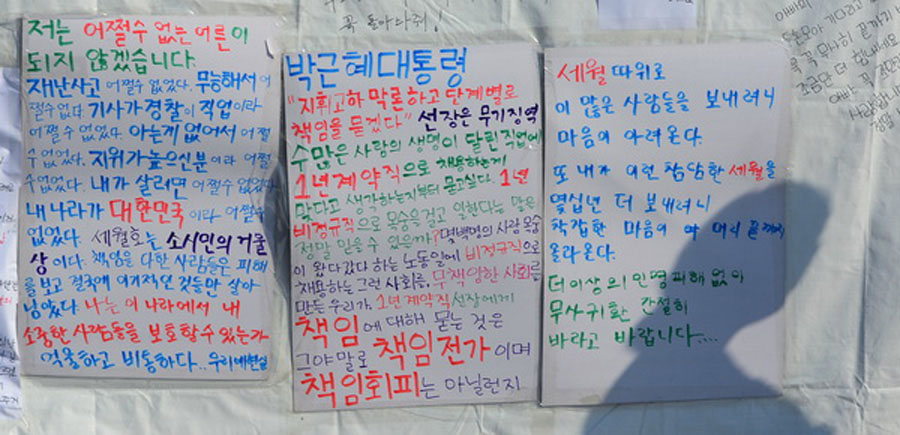 저는 어쩔수 없는 어른이
되지 않겠습니다.
재난사고 어쩔수 없었다. 무능해서 어
쩔수없다 기사가 경찰이 직업이라
어쩔수 없었다. 아는게 없어서 어쩔
수 없었다. 지위가 높으신분이라 어쩔
수없었다. 내가 살려면 어쩔수 없었다
내 나라가 대한민국이라 어쩔수
없었다. 세월호는 소시민의 거울
상이다. 책임을 다한 사람들은 피해
를 보고 결국에 이기적인 것들만 살아
남았다. 나는 이 나라에서 내
소중한 사람들을 보호할수 있는가
억울하고 비통하다..
박근혜대통령
"지휘고하 막론하고 단계별로
책임을 묻겠다" 선장은 무기징역
수 많은 사람의 생명이 달린 직업에
1년 계약직으로 채용하는게
맞다고 생각하는지부터 묻고싶다. 1년
비정규직으로 목숨을걸고 일한다는 말은
정말 믿을수 있은까? 몇백명의 사람 목숨
이 왔다갔다 하는 노동일에 비정규직으로
채용하는 그런 사회를, 무책임한 사회를
만든 우리가, 1년 계약직 선장에게
책임에 대해 묻는 것은
그야말로 책임전가이며
책임회피는 아닐런지
세월 따위로
이 많은 사람들을 보내려니
마음이 아려온다.
또 내가 이런 참담한 세월을
몇십년 더 보내려니
착잡한 마음이 머리 끝까지
올라온다.
더이상의 인명피해 없이
무사귀환 간절히
바라고 바랍니다....
꼭 돌아와줘!